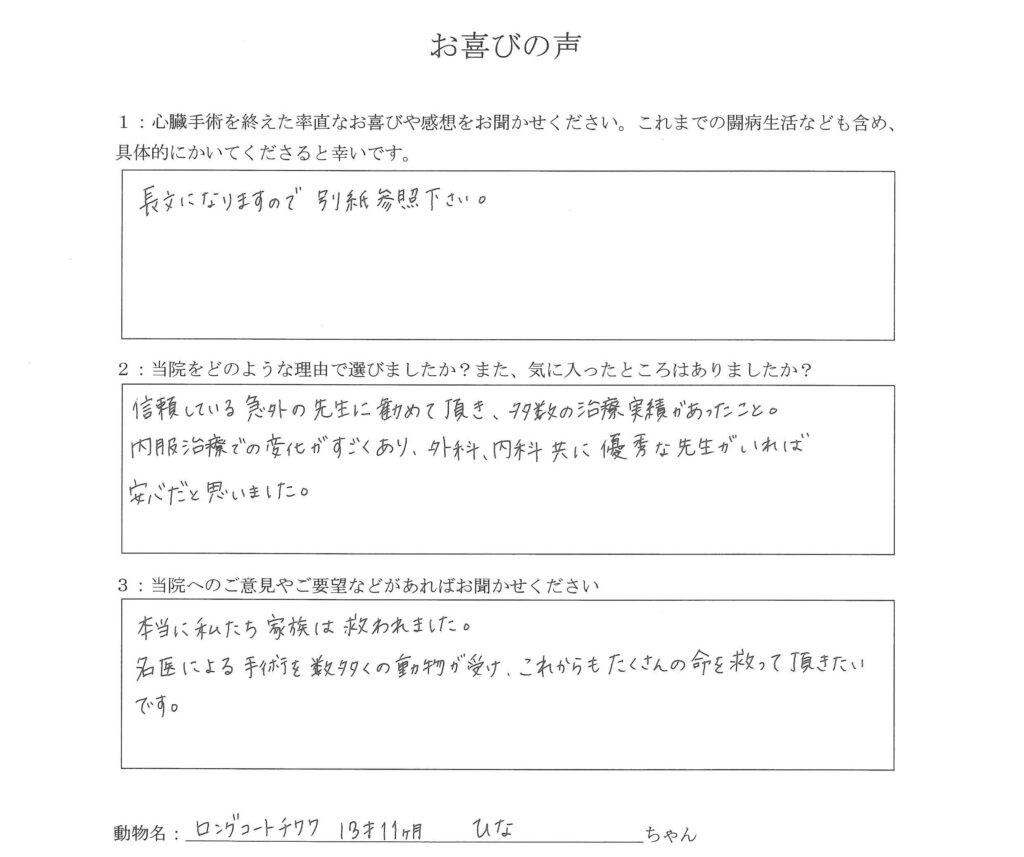 お喜びの声
1：心臓手術を終えた率直なお喜びや感想をお聞かせください。これまでの闘病生活なども含め、
具体的にかいてくださると幸いです。
長文になりますので 別紙参照下さい。
2：当院をどのような理由で選びましたか？また、気に入ったところはありましたか？
信頼している救外の先生に勧めて頂き、多数の治療実績があったこと。
内服治療での変化がすごくあり、外科、内科共に優秀な先生がいれば
安心だと思いました。
3：当院へのご意見やご要望などがあればお聞かせください
本当に私たち家族は救われました。
名医による手術を数多くの動物が受け、これからもたくさんの命を救って頂きたい
です。
動物名：ロングコートチワワ 13才11ヶ月 ひな ちゃん